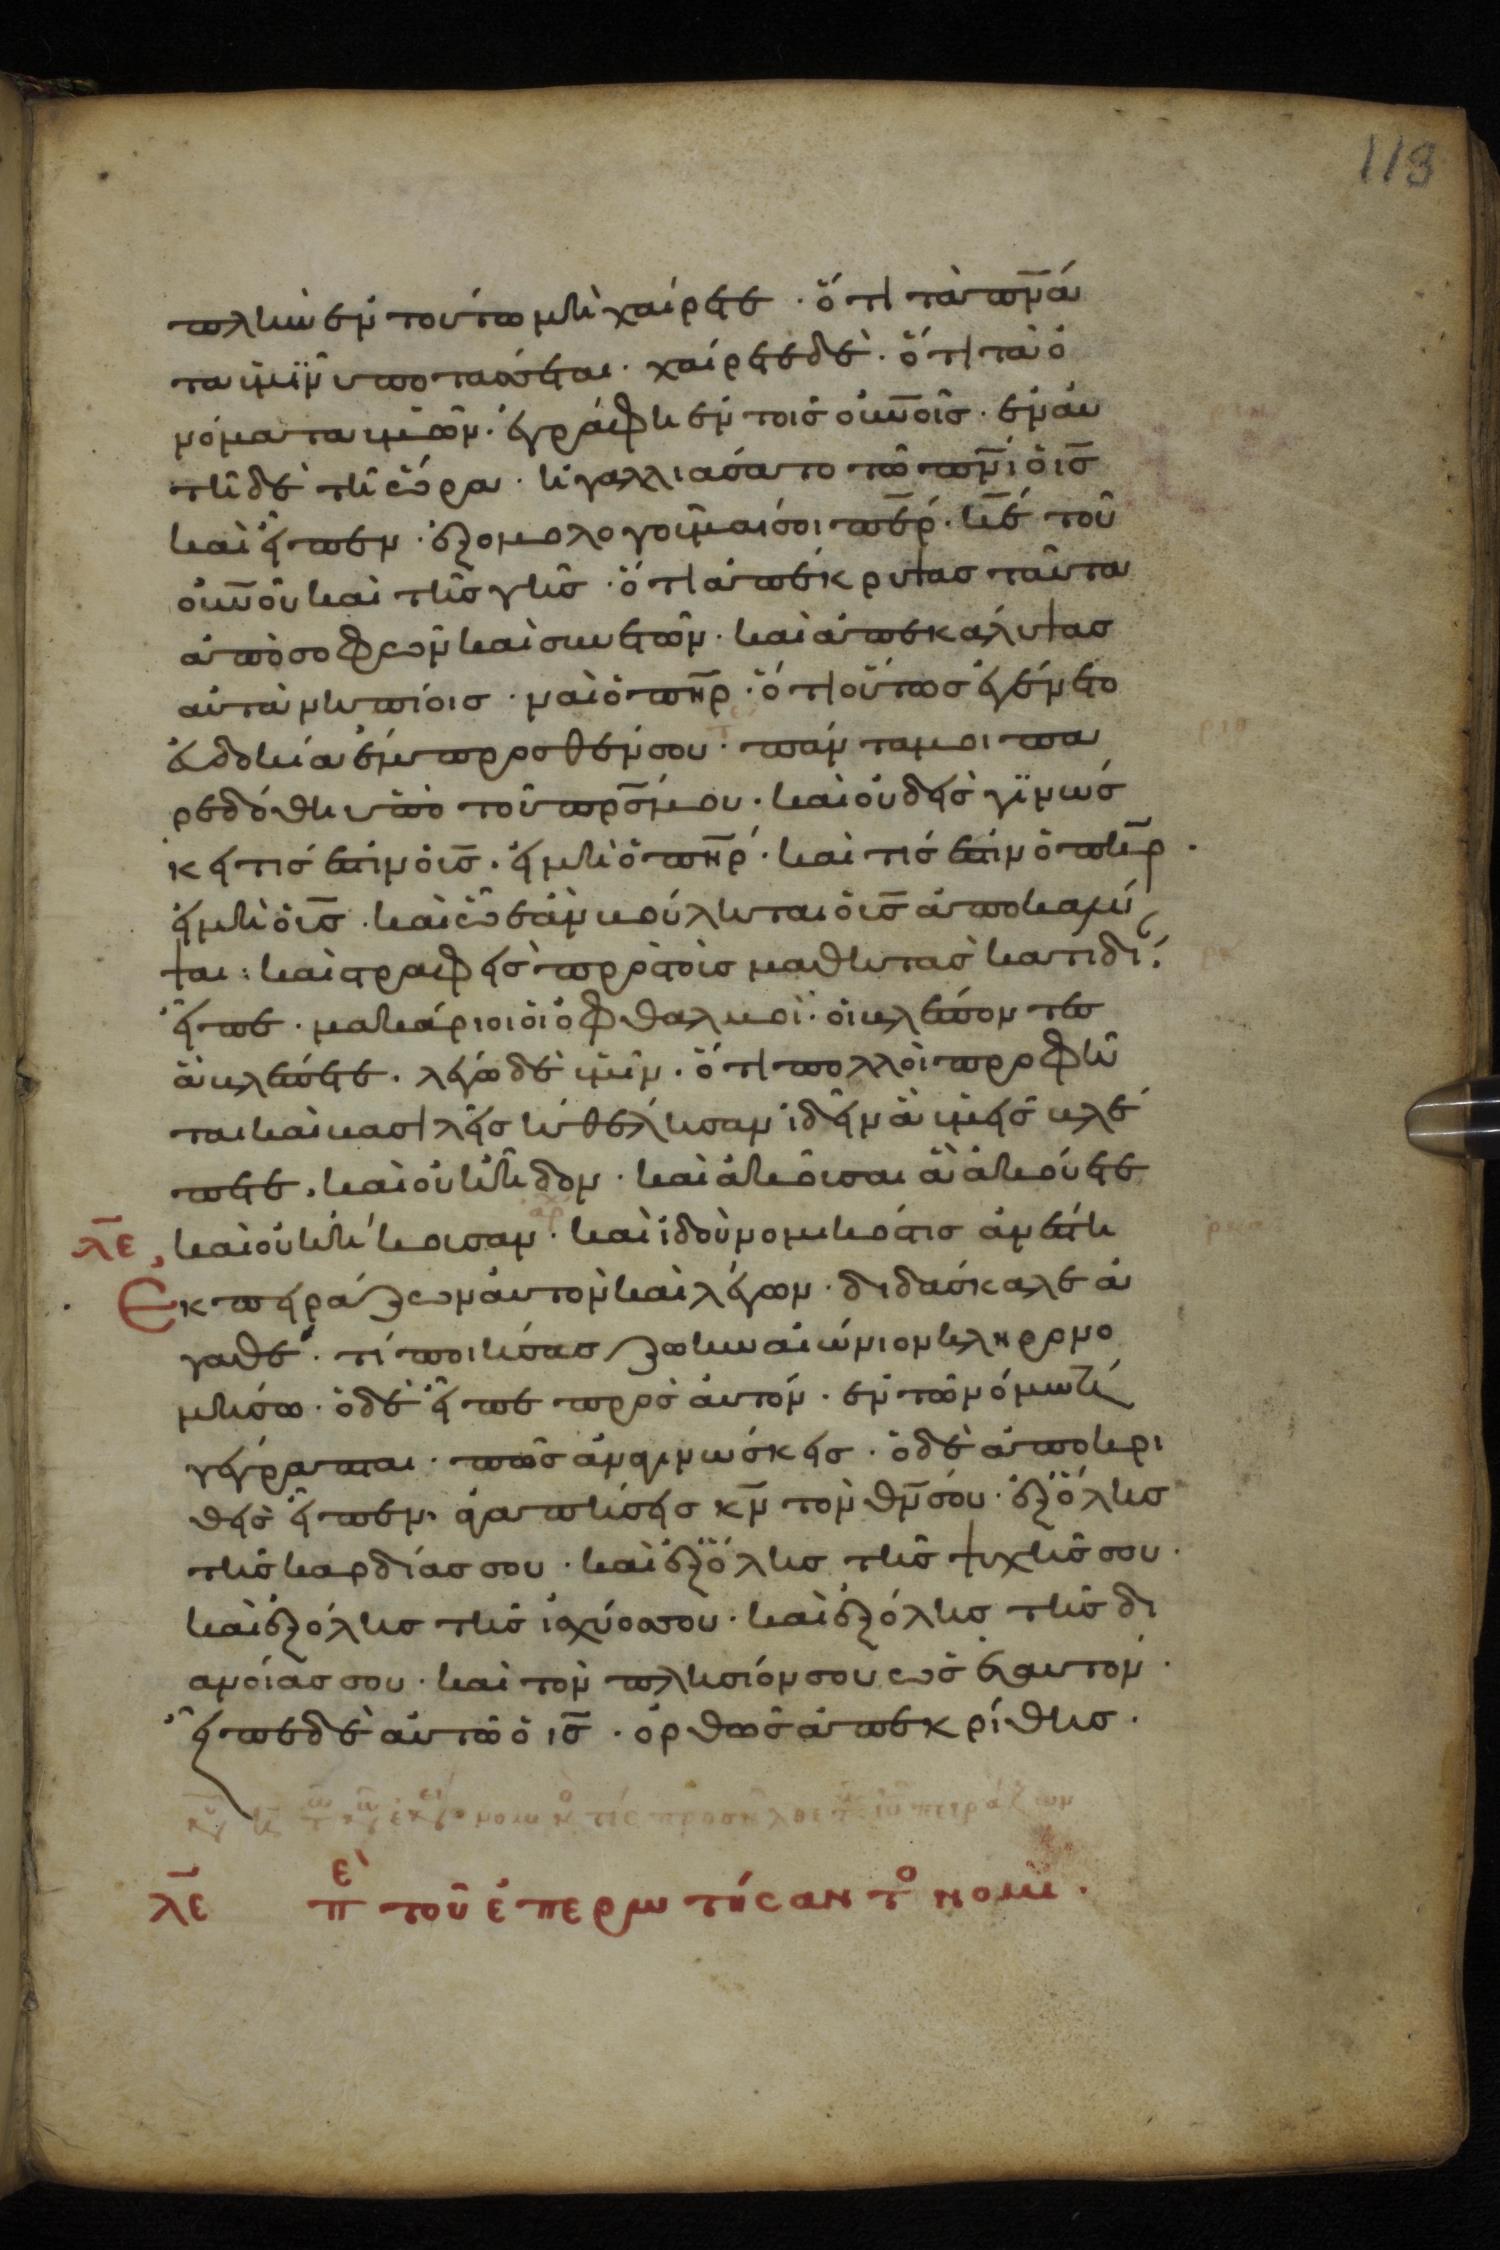 113
πλὴν ἐν τούτω μὴ χαίρετε · ὅτι τὰ πνά
τα ὑμῖν ὑποτάσσεται · χαίρετε δὲ · ὅτι τὰ ὀ
νόματα ὑμῶν · ἐγράφη ἐν τοῖς οὐνοῖς · ἐν αὐ
τῆ δὲ τῆ ὥρα · ἠγαλλιάσατο τῶ πνὶ ὁ ις
καὶ εἶπεν · ἐξομολογοῦμαι σοι περ · κε τοῦ
οὐνοῦ καὶ τῆς γῆς · ὅτι ἀπέκρυψας ταῦτα
ἀπὸ σοφῶν καὶ συνετῶν · καὶ ἀπεκάλυψας
αὐτὰ νηπίοις · ναὶ ὁ πηρ · ὅτι οὕτως ἐγένετο
εὐδοκία ἔμπροσθέν σου · πάντα μοι πα
ρεδόθη ὑπὸ τοῦ πρς μου · καὶ οὐδεὶς γινώσ
κει τίς ἐστιν ὁ υς · εἰ μὴ ὁ πηρ · καὶ τίς ἐστιν ὁ πηρ ·
εἰ μὴ ὁ υς · καὶ ὧ ἐὰν βούληται ὁ υς ἀποκαλύ
ψαι : καὶ στραφεὶς πρὸς τοὺς μαθητὰς κατιδί·
εἶπε · μακάριοι οἱ ὀφθαλμοὶ · οἱ βλέποντες
ἃ βλέπετε · λέγω δὲ ὑμῖν · ὅτι πολλοὶ προφῆ
ται καὶ βασιλεῖς ἠθέλησαν ἰδεῖν ἃ ὑμεῖς βλέ
πετε · καὶ οὐκ εἶδον · καὶ ἀκοῦσαι ἃ ἀκούετε
λε καὶ οὐκ ἤκουσαν · καὶ ἰδοὺ νομικός τις ἀνέστη
Εκπειράζων αὐτὸν καὶ λέγων · διδάσκαλε ἀ
γαθέ · τί ποιήσας ζωὴν αἰώνιον κληρονο
μήσω · ὁ δὲ εἶπε πρὸς αὐτόν · ἐν τῶ νόμω τί
γέγραπται · πῶς ἀναγινώσκεις · ὁ δὲ ἀποκρι
θεὶς εἶπεν · ἀγαπήσεις κν τὸν θν σου · ἐξ ὅλης
τῆς καρδίας σου · καὶ ἐξ ὅλης τῆς ψυχῆς σου ·
καὶ ἐξ ὅλης τῆς ἰσχύος σου · καὶ ἐξ ὅλης τῆς δι
ανοίας σου · καὶ τὸν πλησίον σου ὡς ἑαυτόν ·
εἶπε δὲ αὐτῶ ὁ ις · ὀρθῶς ἀπεκρίθης ·
νομικός τις προσῆλθε τῶ ιυ πειράζων
λε πε τοῦ ἐπερωτήσαντο νομι ·